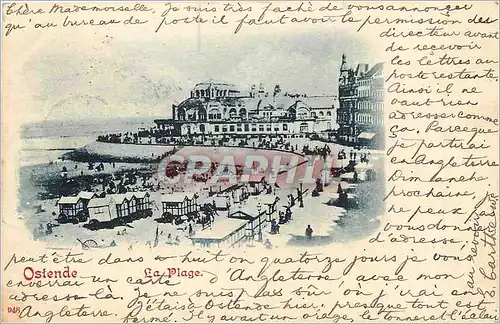 Chère Mademoiselle, Je suis très faché de vous annonçer
qu'au bureau de poste il faut avoir te permission des
directeur avant
de recevoir
les lettres au
poste restante.
Ainsi il ne
vaut rien
adresser comme
ça. Parceque
je partirai
en Angleterre
Dimanche
prochaine,
je peux
vous donn
d'adresse,
peut être dans huit ou quatorze jours je vous
Ostende La Plage.
enverrai un carte d'Angleterre avec mon
adresse là. Je ne suis pas sûr où j'irai en
Angleterre. J'étais à Ostende hier, presque tout est
fermé. Il y avait un orage, le tonnerre l'éclair
946
CPARTHI